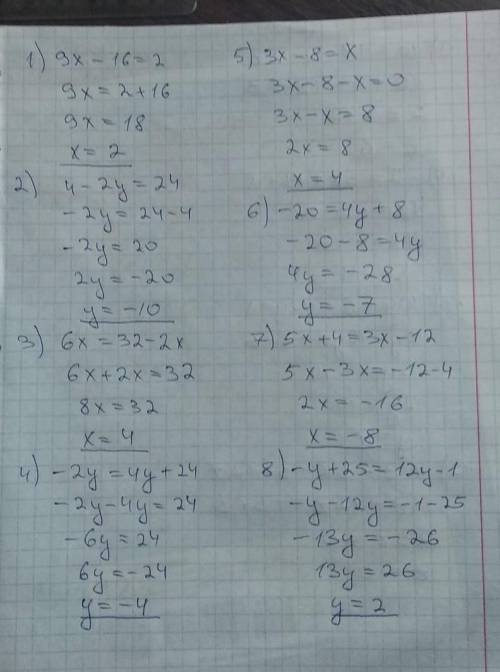 1) 9x - 16 = 2
9x = 2 + 16
9x = 18
x = 2
2) 4 - 2y = 24
-2y = 24 - 4
-2y = 20
2y = -20
y = -10
3) 6x = 32 - 2x
6x + 2x = 32
8x = 32
x = 4
4) -2y = 4y + 24
-2y - 4y = 24
-6y = 24
6y = -24
y = -4
5) 3x - 8 = x
3x - 8 - x = 0
3x - x = 8
2x = 8
x = 4
6) -20 = 4y + 8
-20 - 8 = 4y
4y = -28
y = -7
7) 5x + 4 = 3x - 12
5x - 3x = -12 - 4
2x = -16
x = -8
8) -y + 25 = 12y - 1
-y - 12y = -1 - 25
-13y = -26
13y = 26
y = 2